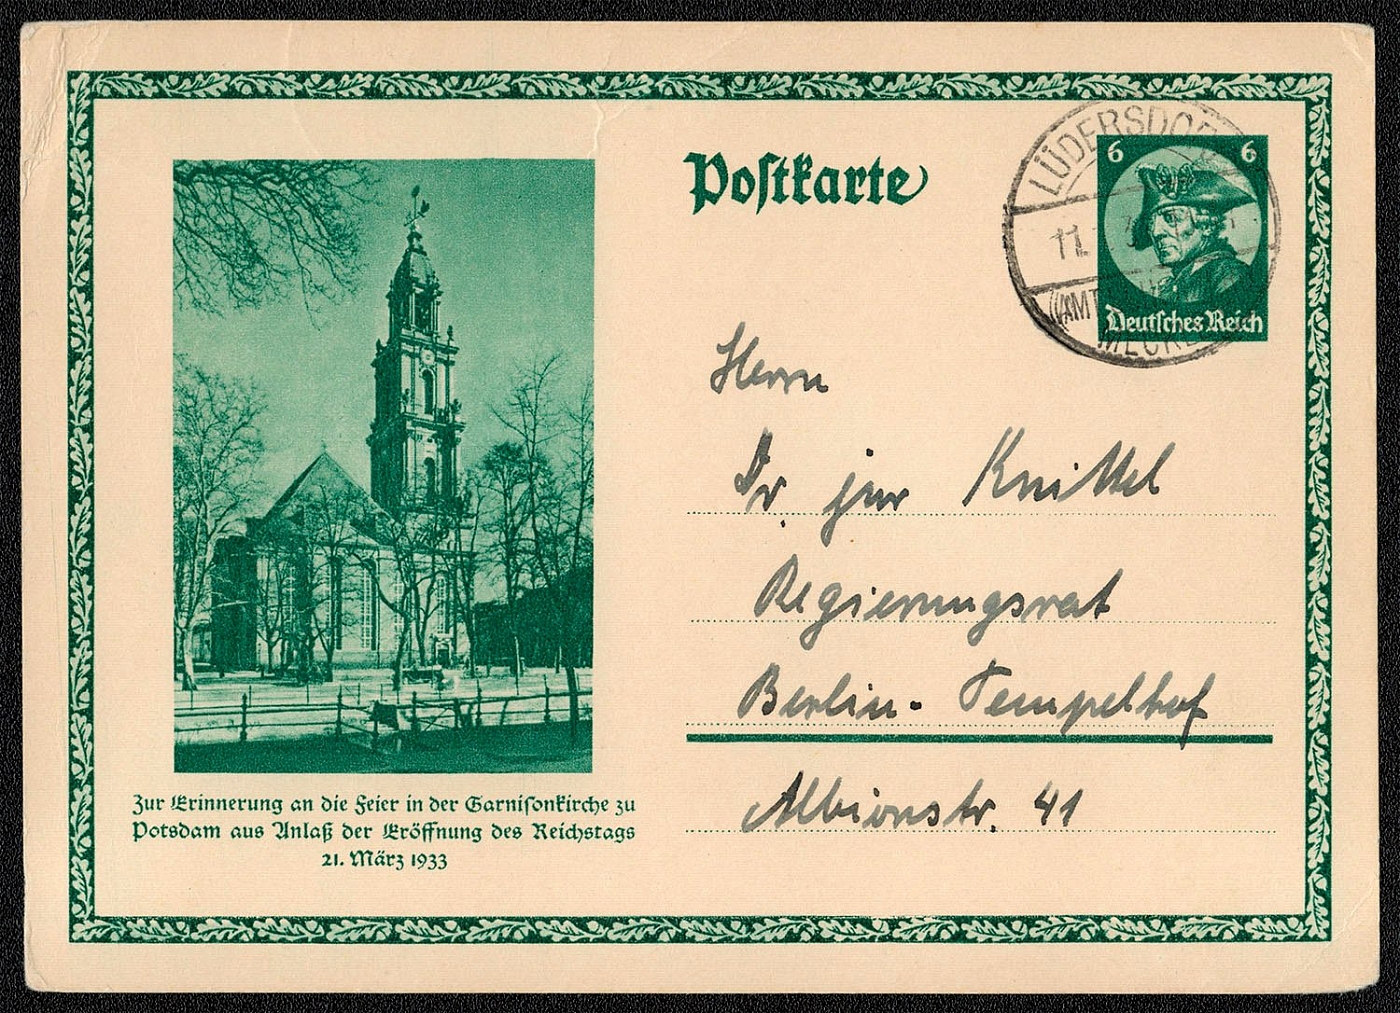 Postkarte
LÜDERSDORF
11.
(AMT
MECKL
6 6
Deutsches Reich
Herrn
Dr. jur Knittel
Regierungsrat
Berlin-Tempelhof
Albionstr. 41
Zur Erinnerung an die Feier in der Garnisonkirche zu
Potsdam aus Anlaß der Eröffnung des Reichstags
21. März 1933